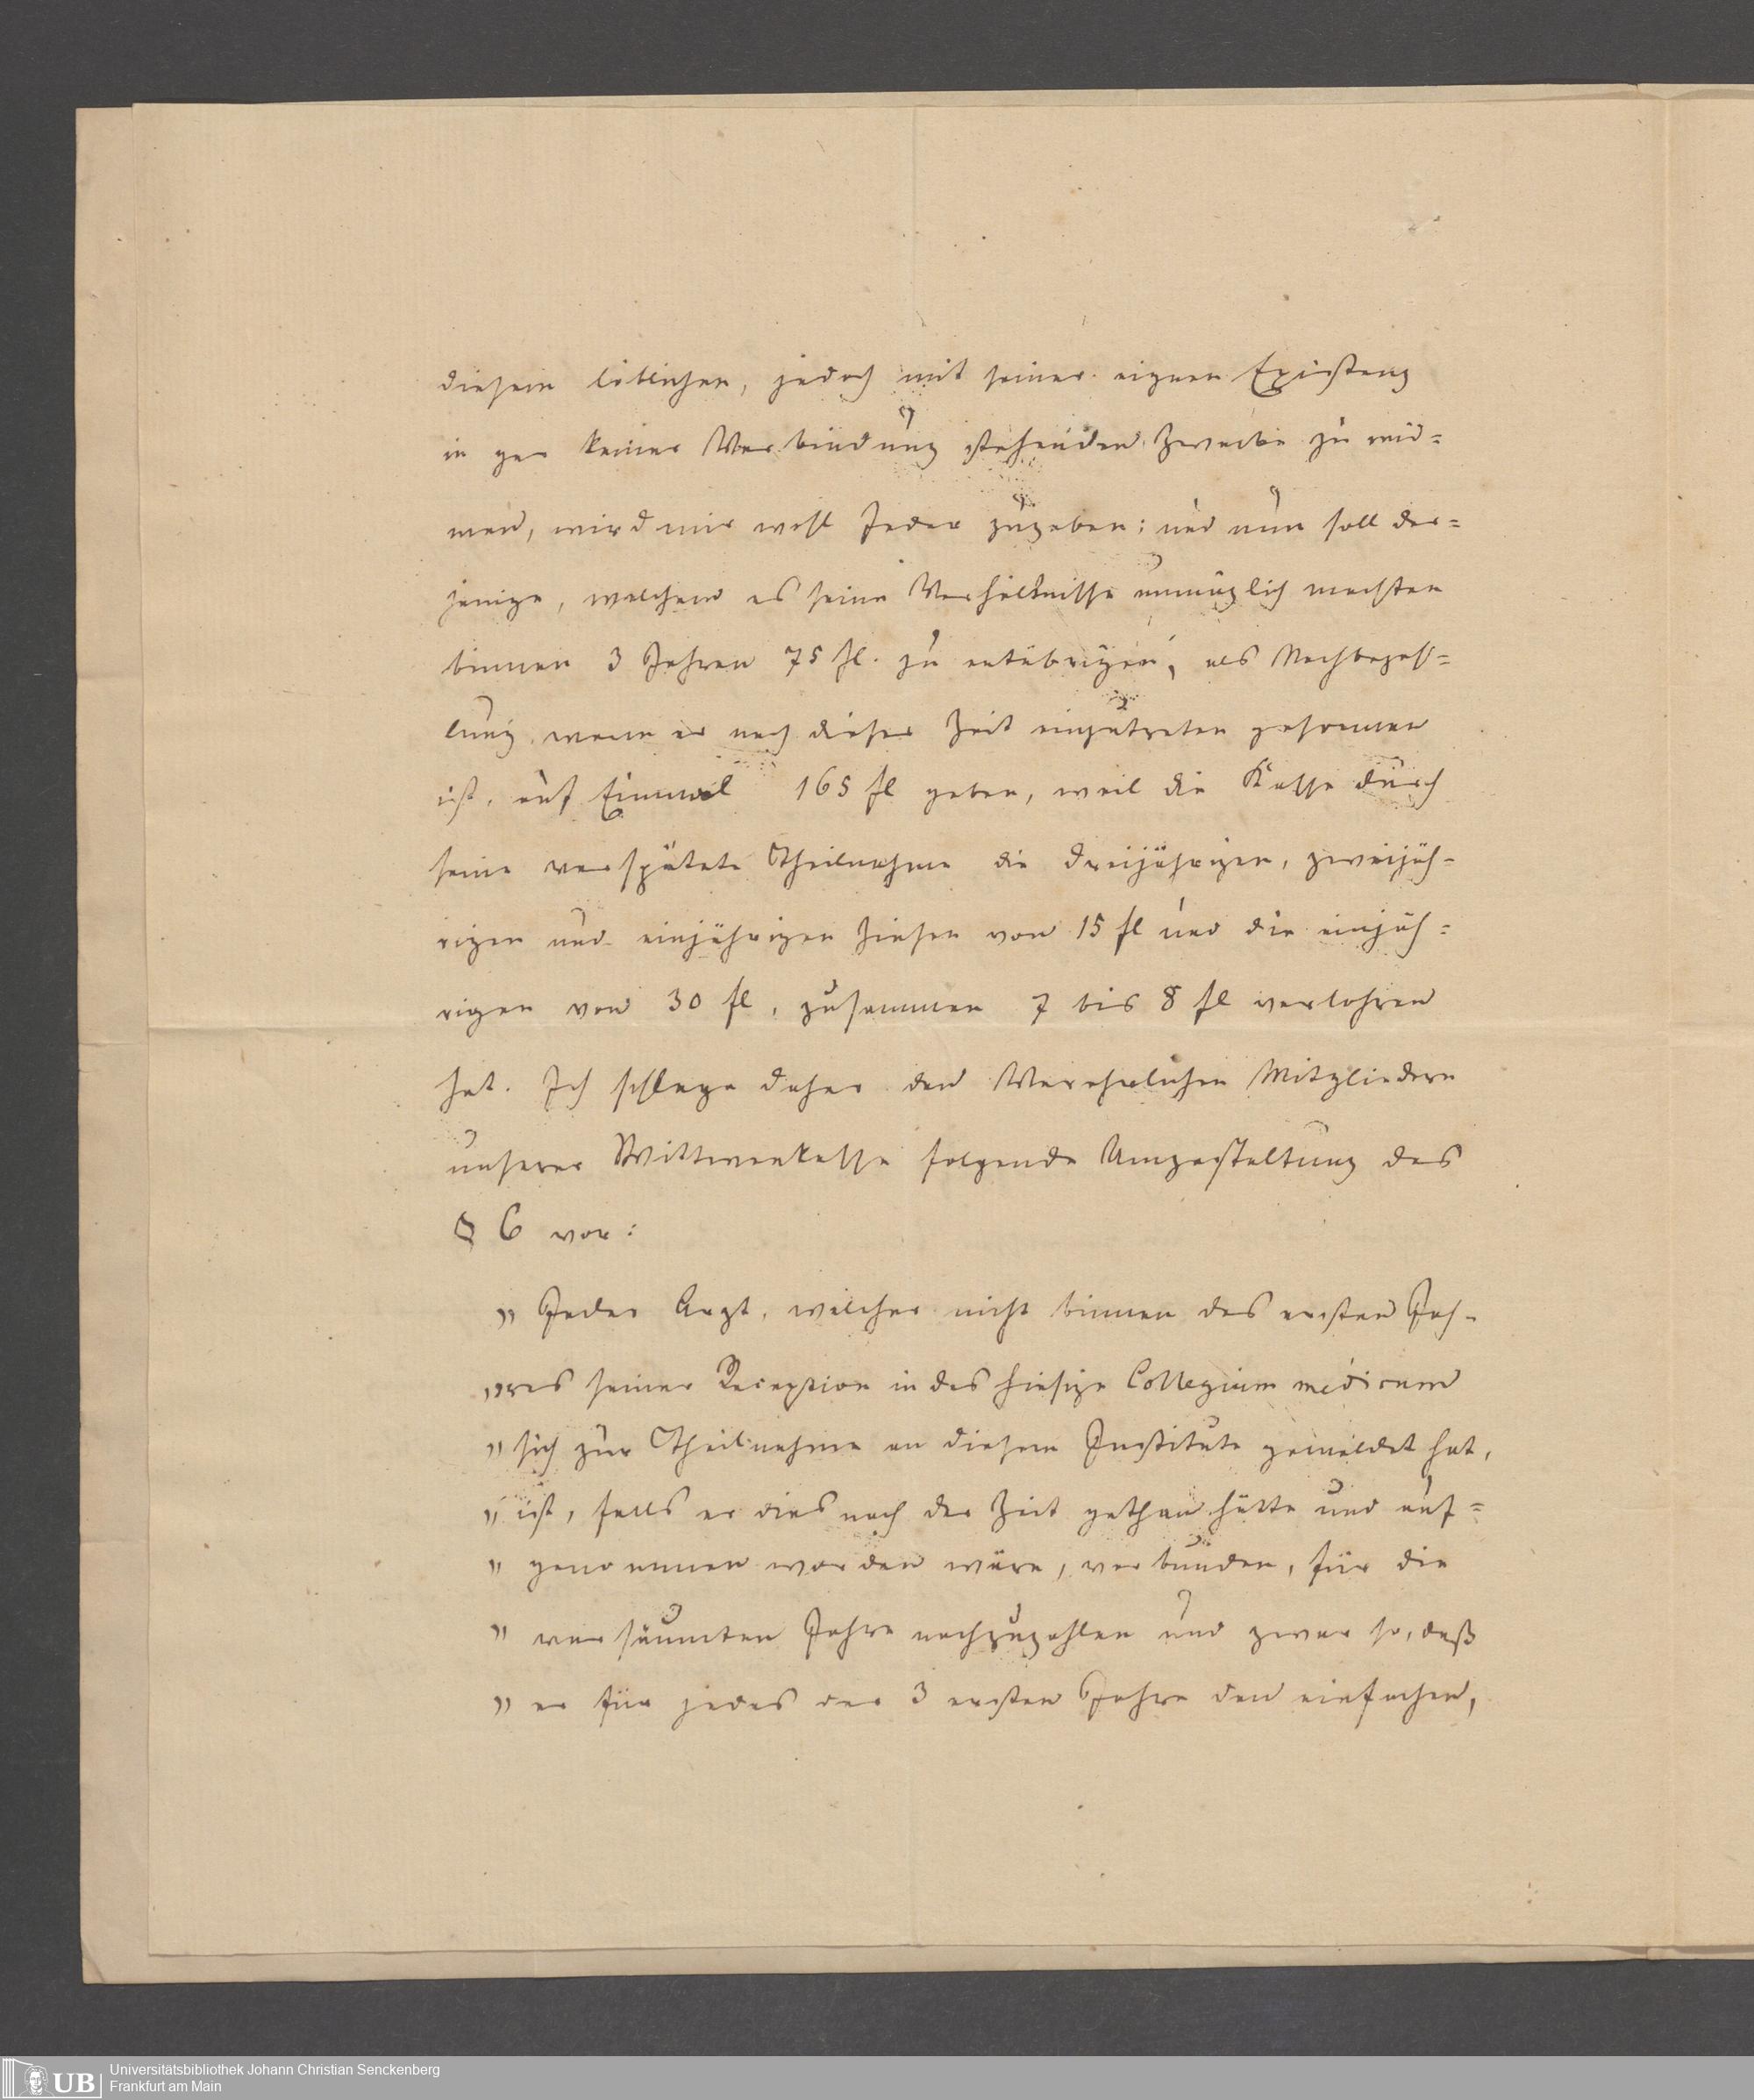 diesem löblichen, jedoch mit seiner eignen Existenz
in gar keiner Verbindung stehenden Zwecke zu wid=
men, wird mir wohl Jeder zugeben; und nun soll der=
jenige, welchem es seine Verhältnisse unmöglich machten
binnen 3 Jahren 75 fl. zu entübrigen, als Nachbezah=
lung, wenn er nach dieser Zeit einzutreten gesonnen
ist, auf Einmal 165 fl geben, weil die Kasse durch
seine verspätete Theilnahme die dreijährigen, zweijäh=
rigen und einjährigen Zinsen von 15 fl und die einjäh=
rigen von 30 fl, zusammen 7 bis 8 fl verlohren
hat. Ich schlage daher den Verehrlichen Mitgliedern
unserer Wittwenkasse folgende Umgestaltung des
§ 6 vor:
„ Jeder Arzt, welcher nicht binnen des ersten Jah=
„res seiner Reception in das hiesige Collegium medicum
„ sich zur Theilnahme an diesem Institute gemeldet hat,
„ ist, falls er dies nach der Zeit gethan hätte und auf=
„ genommen worden wäre, verbunden, für die
„ versäumten Jahre nachzuzahlen und zwar so, daß
„ er für jedes der 3 ersten Jahre den einfachen,
UB
Universitätsbibliothek Johann Christian Senckenberg
Frankfurt am Main